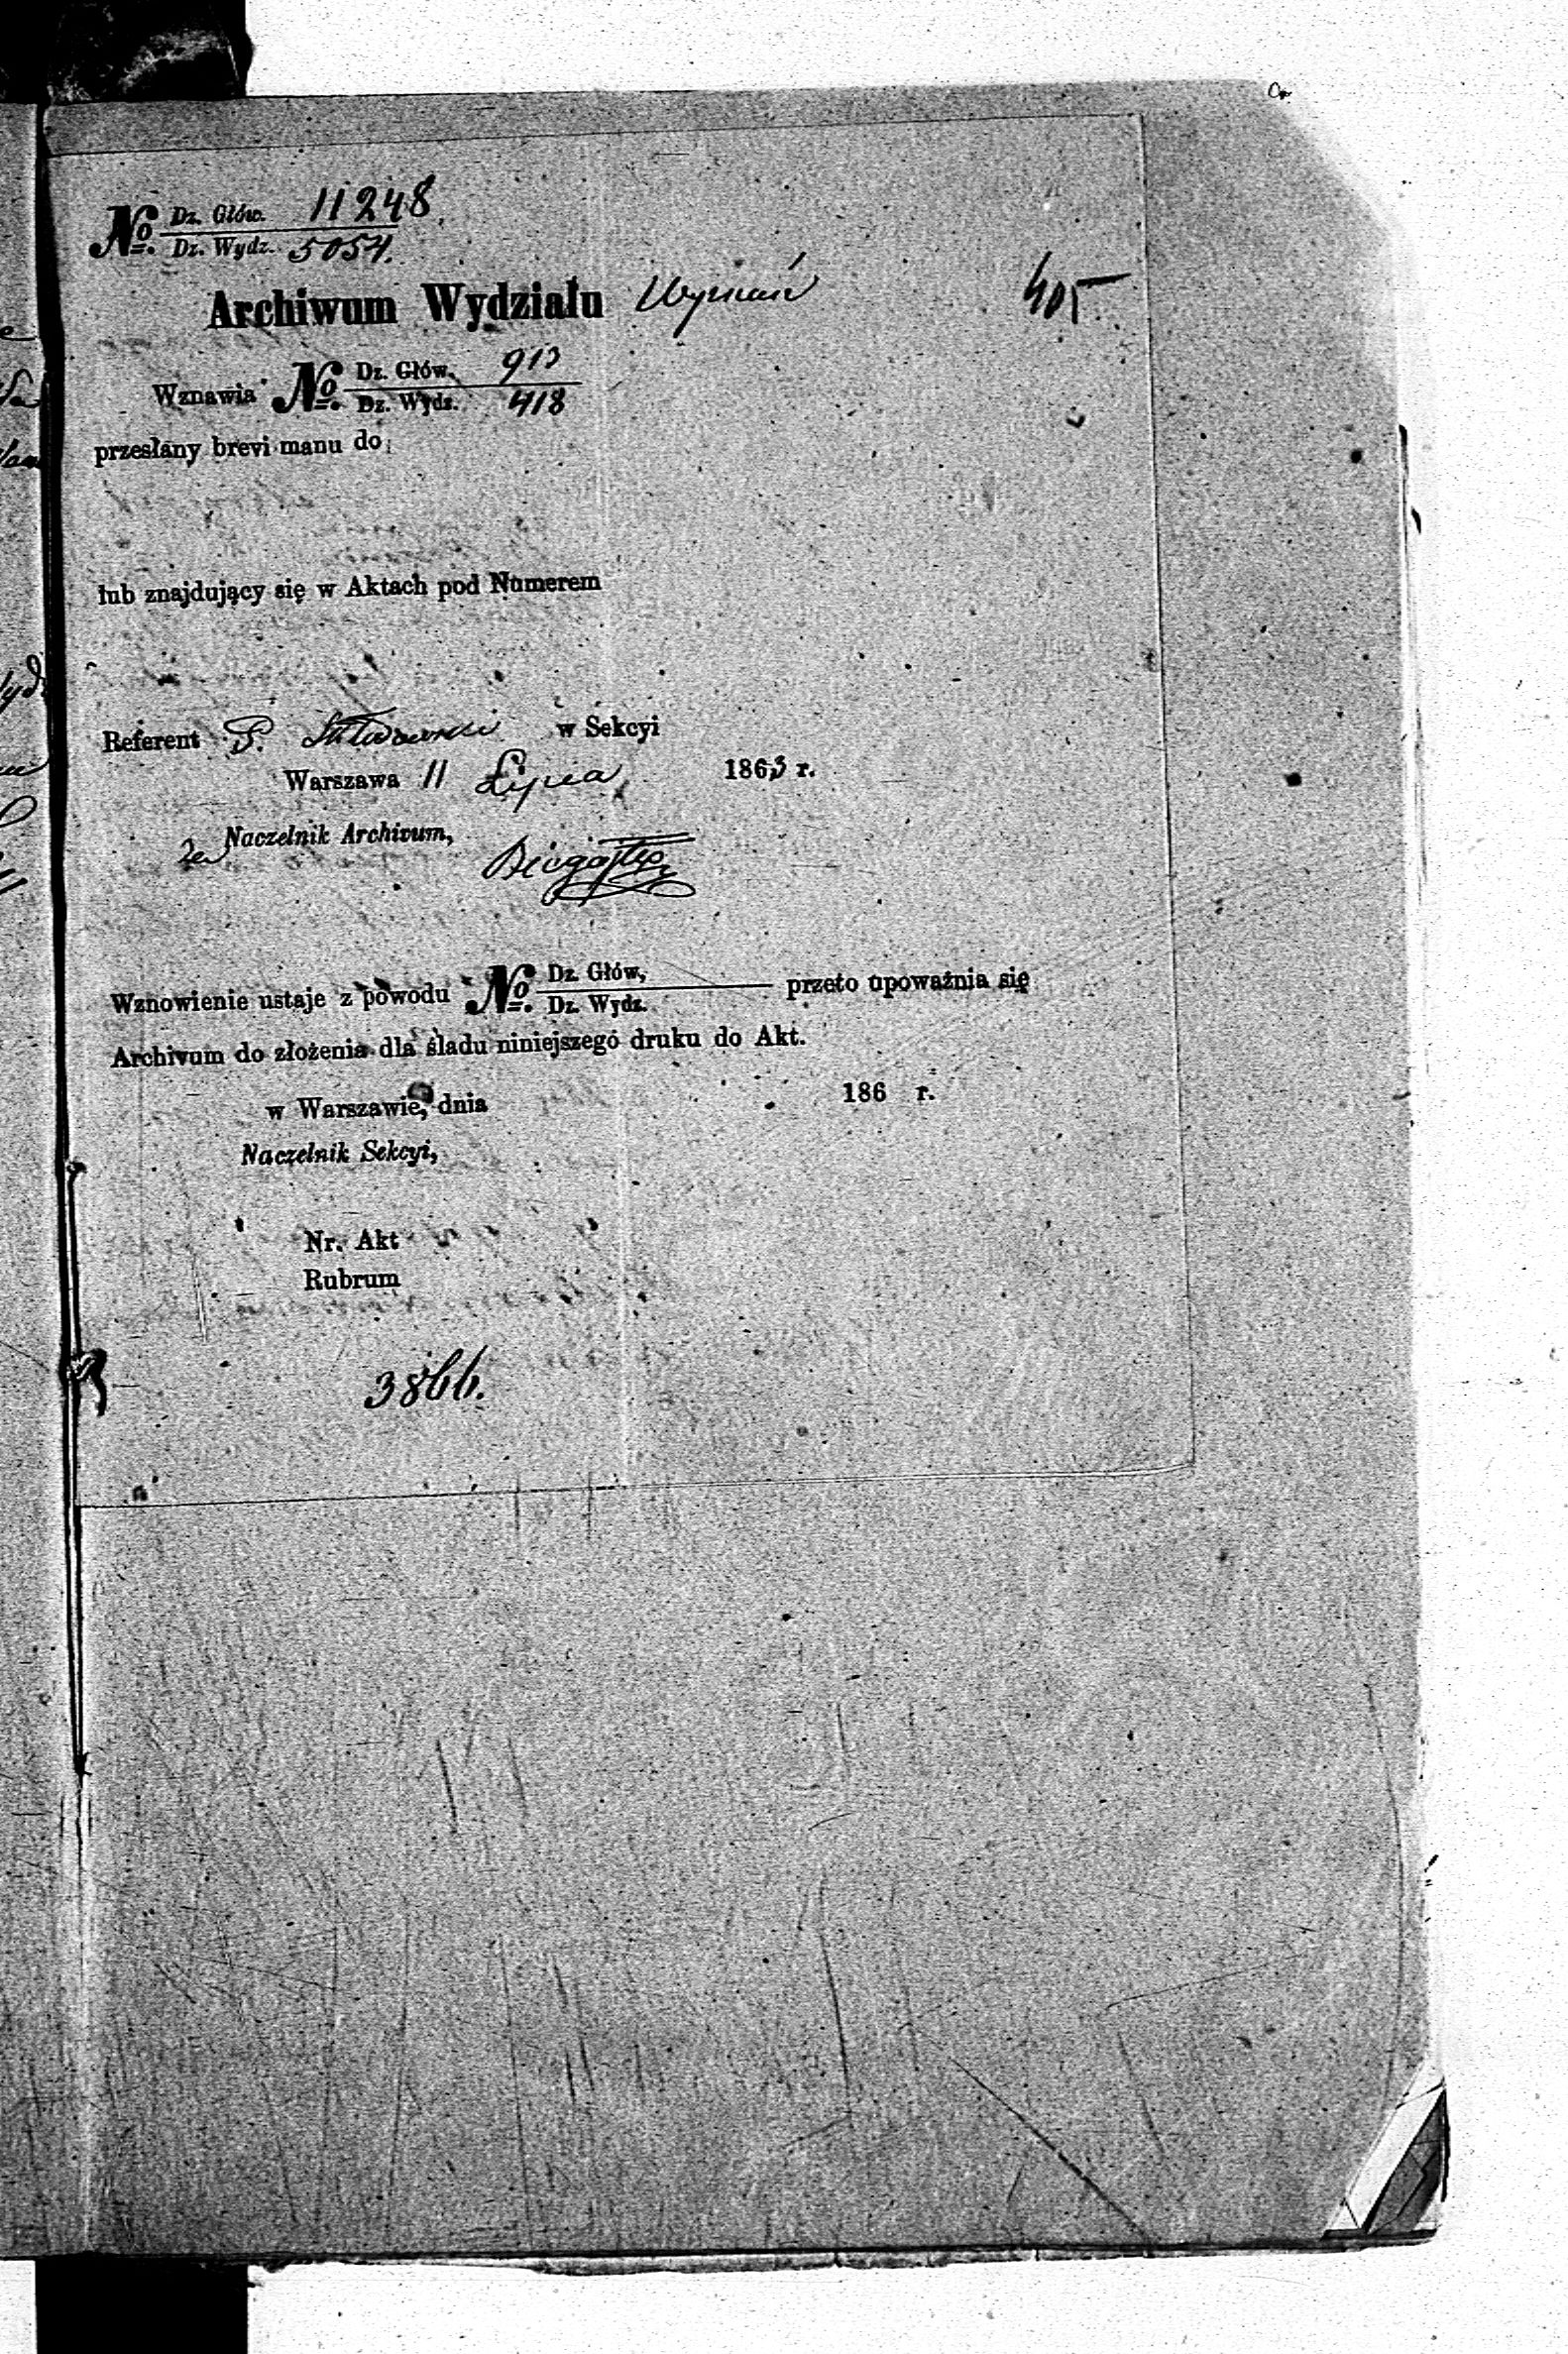 № Dz. Głów. 11248
Dz. Wydz. 5054.
405
Archiwum Wydziału Wyznań
Wznawia № Dz. Głów. 913
Dz. Wydz. 418
przesłany brevi manu do
lub znajdujący się w Aktach pod Numerem
Referent P. w Sekcyi
Warszawa 11 Lipca 1863 r.
Naczelnik Archivum,
Wznowienie ustaje z powodu № Dz. Głów, przeto upoważnia się
Dz. Wydz.
Archivum do złożenia dla śladu niniejszego druku do Akt.
w Warszawie, dnia 186 r.
Naczelnik Sekcyi,
Nr. Akt
Rubrum
3866.